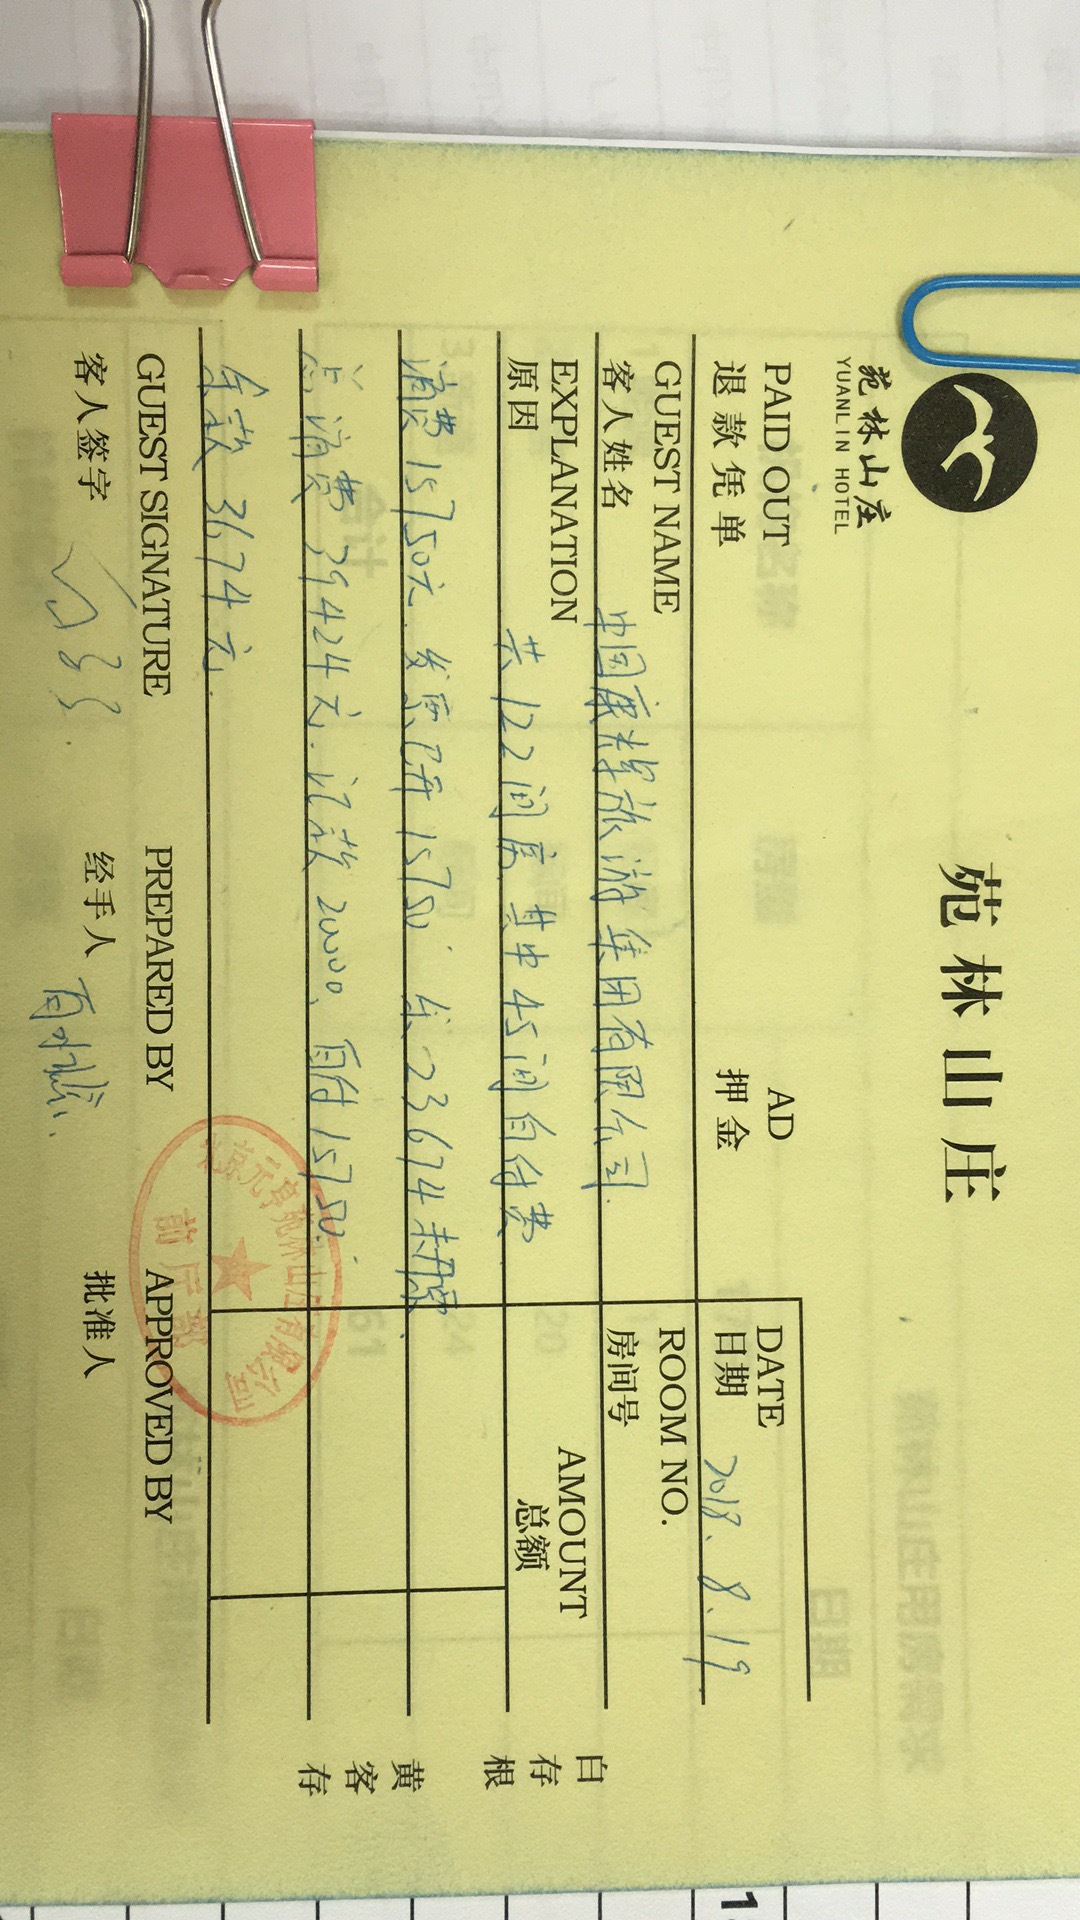 苑林山庄
苑林山庄
YUANLIN HOTEL
PAID OUT
退款凭单
AD
押金
DATE
日期 2018.8.19
GUEST NAME
客人姓名 中国康辉旅游集团有限公司.
ROOM NO.
房间号
EXPLANATION
原因 共122间房,其中45间自付费
AMOUNT
总额
消费15750元.发票已开15750.余23674未开票.
总消费39424元.记款20000,自付15750.
余款3674元.
GUEST SIGNATURE
客人签字
PREPARED BY
经手人
APPROVED BY
批准人
前厅部
白存根
黄客存